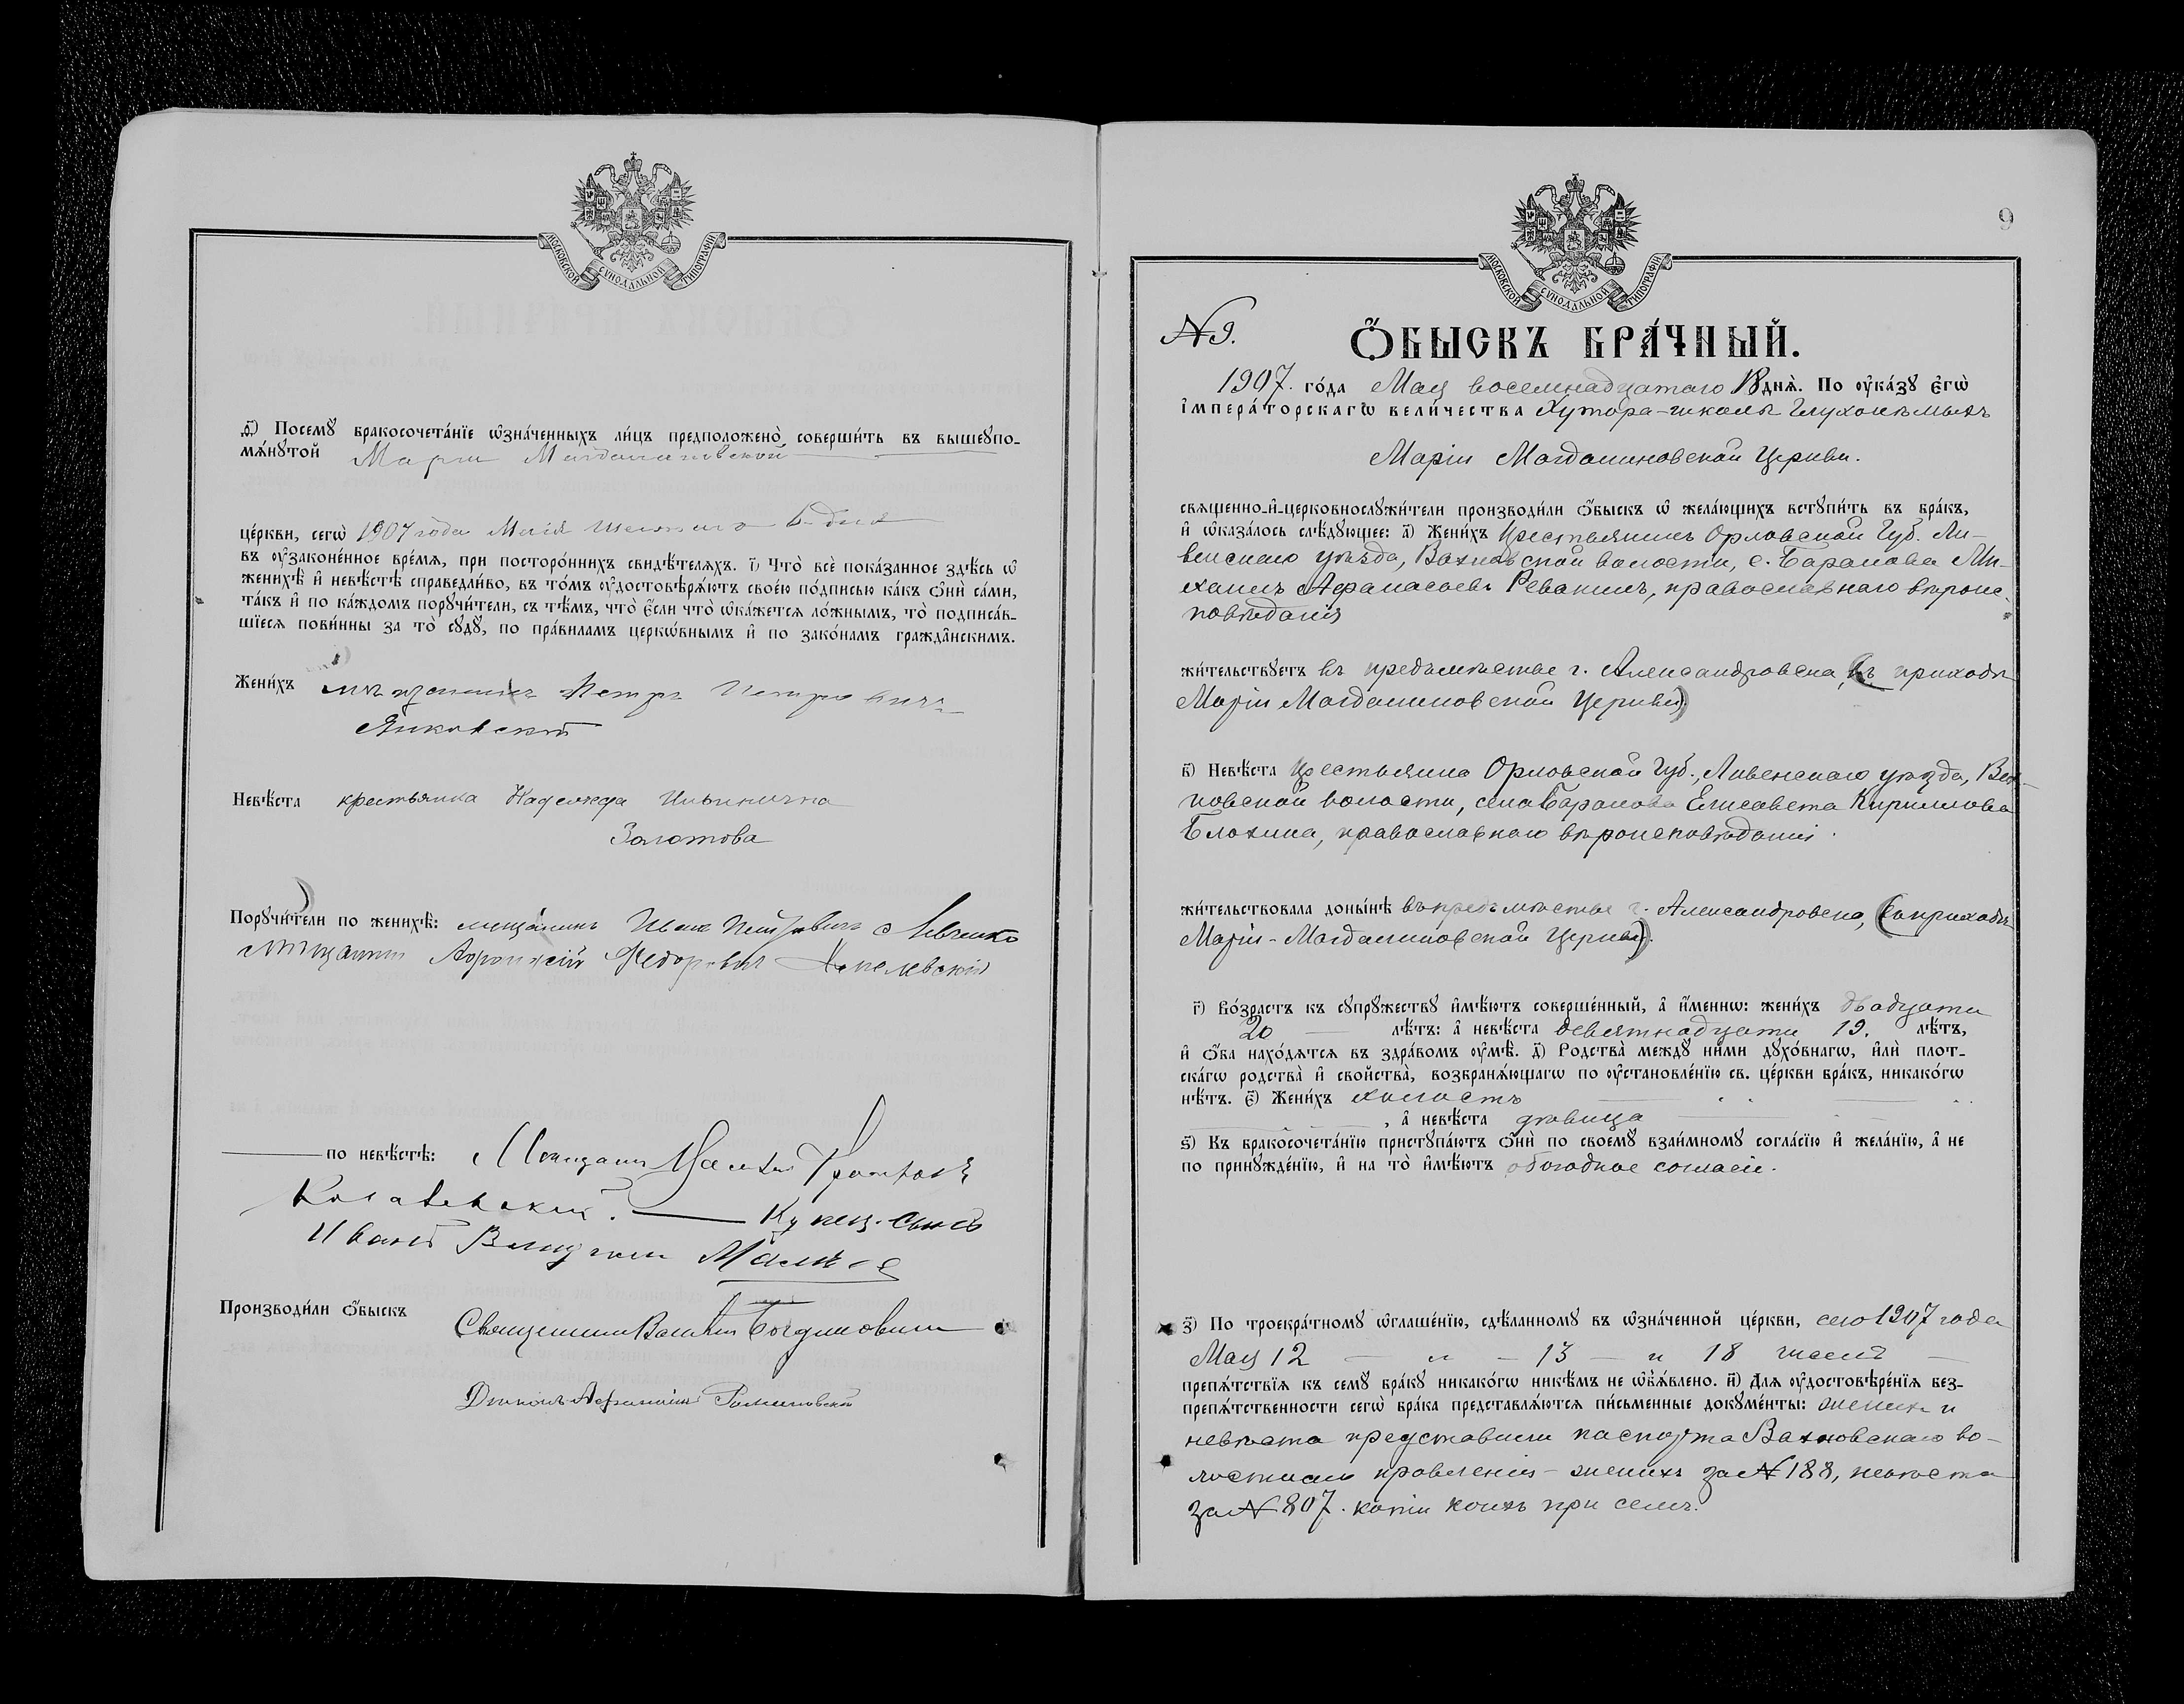 МОСКОВСКОЙ СѴНОДАЛЬНОЙ ТИПОГРАФІИ
ѳ҃) Посемꙋ̀ бракосочета́нїе ѡ҆зна́ченныхъ ли́цъ предположено̀ соверши́ть въ вышеꙋпо-
мѧ́нꙋтой Маріи Магдалиновской
це́ркви, сегѡ̀ 1907 года Маія шестого 6 дня
въ ᲂу҆законе́нное вре́мѧ, при посторо́ннихъ свидѣ́телѧхъ. і҃) Что̀ всѐ пока́занное здѣ́сь ѡ҆
женихѣ̀ и҆ невѣ́стѣ справедли́во, въ то́мъ ᲂу҆достовѣрѧ́ютъ свое́ю по́дписью ка́къ ѻ҆нѝ са́ми,
та́къ и҆ по ка́ждомъ порꙋчи́тели, съ тѣ́мъ, что̀ є҆́сли что̀ ѡ҆ка́жетсѧ ло́жнымъ, то̀ подписа́в-
шїесѧ пови́нны за то̀ сꙋдꙋ̀, по пра́виламъ церко́внымъ и҆ по зако́намъ гражда́нскимъ.
Жени́хъ мѣщанинъ Петръ Петровичъ
Янковский
Невѣ́ста крестьянка Надежда Ильинична
Золотова
Порꙋчи́тели по женихѣ̀: мещанинъ Иванъ Петровичъ Левченко
Федоровичъ
по невѣ́стѣ:
Купец. сынъ
Иванъ
Производи́ли ѻ҆́быскъ
Священникъ Василій Богдановичъ
Діаконъ
МОСКОВСКОЙ СѴНОДАЛЬНОЙ ТИПОГРАФІИ
9
№ 9.
Ѻ҆́БЫСКЪ БРА́ЧНЫЙ.
1907. го́да Мая восемнадцатаго 18 днѧ̀. По ᲂу҆ка́зꙋ є҆гѡ̀
і҆мпера́торскагѡ вели́чества Хутора-школы Глухонѣмыхъ
Маріи Магдалиновской Церкви.
свѧще́нно-и҆-церковнослꙋжи́тели производи́ли ѻ҆́быскъ ѡ҆ жела́ющихъ встꙋпи́ть въ бра́къ,
и҆ ѡ҆каза́лось слѣ́дꙋющее: а҃) Жени́хъ Крестьянинъ Орловской Губ. Ли-
венскаго уѣзда, Вахновской волости, с. Баранова Ми-
хаилъ Афанасьевъ Ревакинъ, православнаго вѣроис-
повѣданія
жи́тельствꙋетъ въ предмѣстьѣ г. Александровска, (въ приходѣ
Маріи Магдалиновской Церкви)
в҃) Невѣ́ста Крестьянка Орловской Губ., Ливенскаго уѣзда, Вах-
новской волости, села Баранова Елисавета Кириллова
Блохина, православнаго вѣроисповѣданія.
жи́тельствовала доны́нѣ въ предмѣстьѣ г. Александровска, (въ приходѣ
Маріи-Магдалиновской Церкви).
г҃) Во́зрастъ къ сꙋпрꙋ́жествꙋ и҆мѣ́ютъ соверше́нный, а҆ и҆́меннѡ: жени́хъ двадцати
20 лѣ́тъ: а҆ невѣ́ста девятнадцати 19. лѣ́тъ,
и҆ ѻ҆́ба нахо́дѧтсѧ въ здра́вомъ ᲂу҆мѣ̀. д҃) Родства̀ междꙋ̀ ни́ми дꙋхо́внагѡ, и҆лѝ плот-
ска́гѡ родства̀ и҆ свойства̀, возбранѧ́ющагѡ по ᲂу҆становле́нїю св. це́ркви бра́къ, никако́гѡ
нѣ́тъ. є҃) Жени́хъ холостъ
, а҆ невѣ́ста дѣвица
ѕ҃) Къ бракосочета́нїю пристꙋпа́ютъ ѻ҆нѝ по своемꙋ̀ взаи́мномꙋ согла́сїю и҆ жела́нїю, а҆ не
по принꙋжде́нїю, и҆ на то̀ и҆мѣ́ютъ обоюдное согласіе.
з҃) По троекра́тномꙋ ѡ҆глаше́нїю, сдѣ́ланномꙋ въ ѡ҆зна́ченной це́ркви, сего 1907 года
Мая 12 — " — 13 — и 18 чиселъ —
препѧ́тствїѧ къ семꙋ̀ бра́кꙋ никако́гѡ никѣ́мъ не ѡ҆б̾ѧ́влено. и҃) Длѧ ᲂу҆достовѣре́нїѧ без-
препѧ́тственности сегѡ̀ бра́ка представлѧ́ютсѧ пи́сьменные докꙋме́нты: женихъ и
невѣста представили паспорта Вахновскаго во-
лостнаго правленія – женихъ за № 188, невѣста
за № 807. копіи коихъ при семъ.